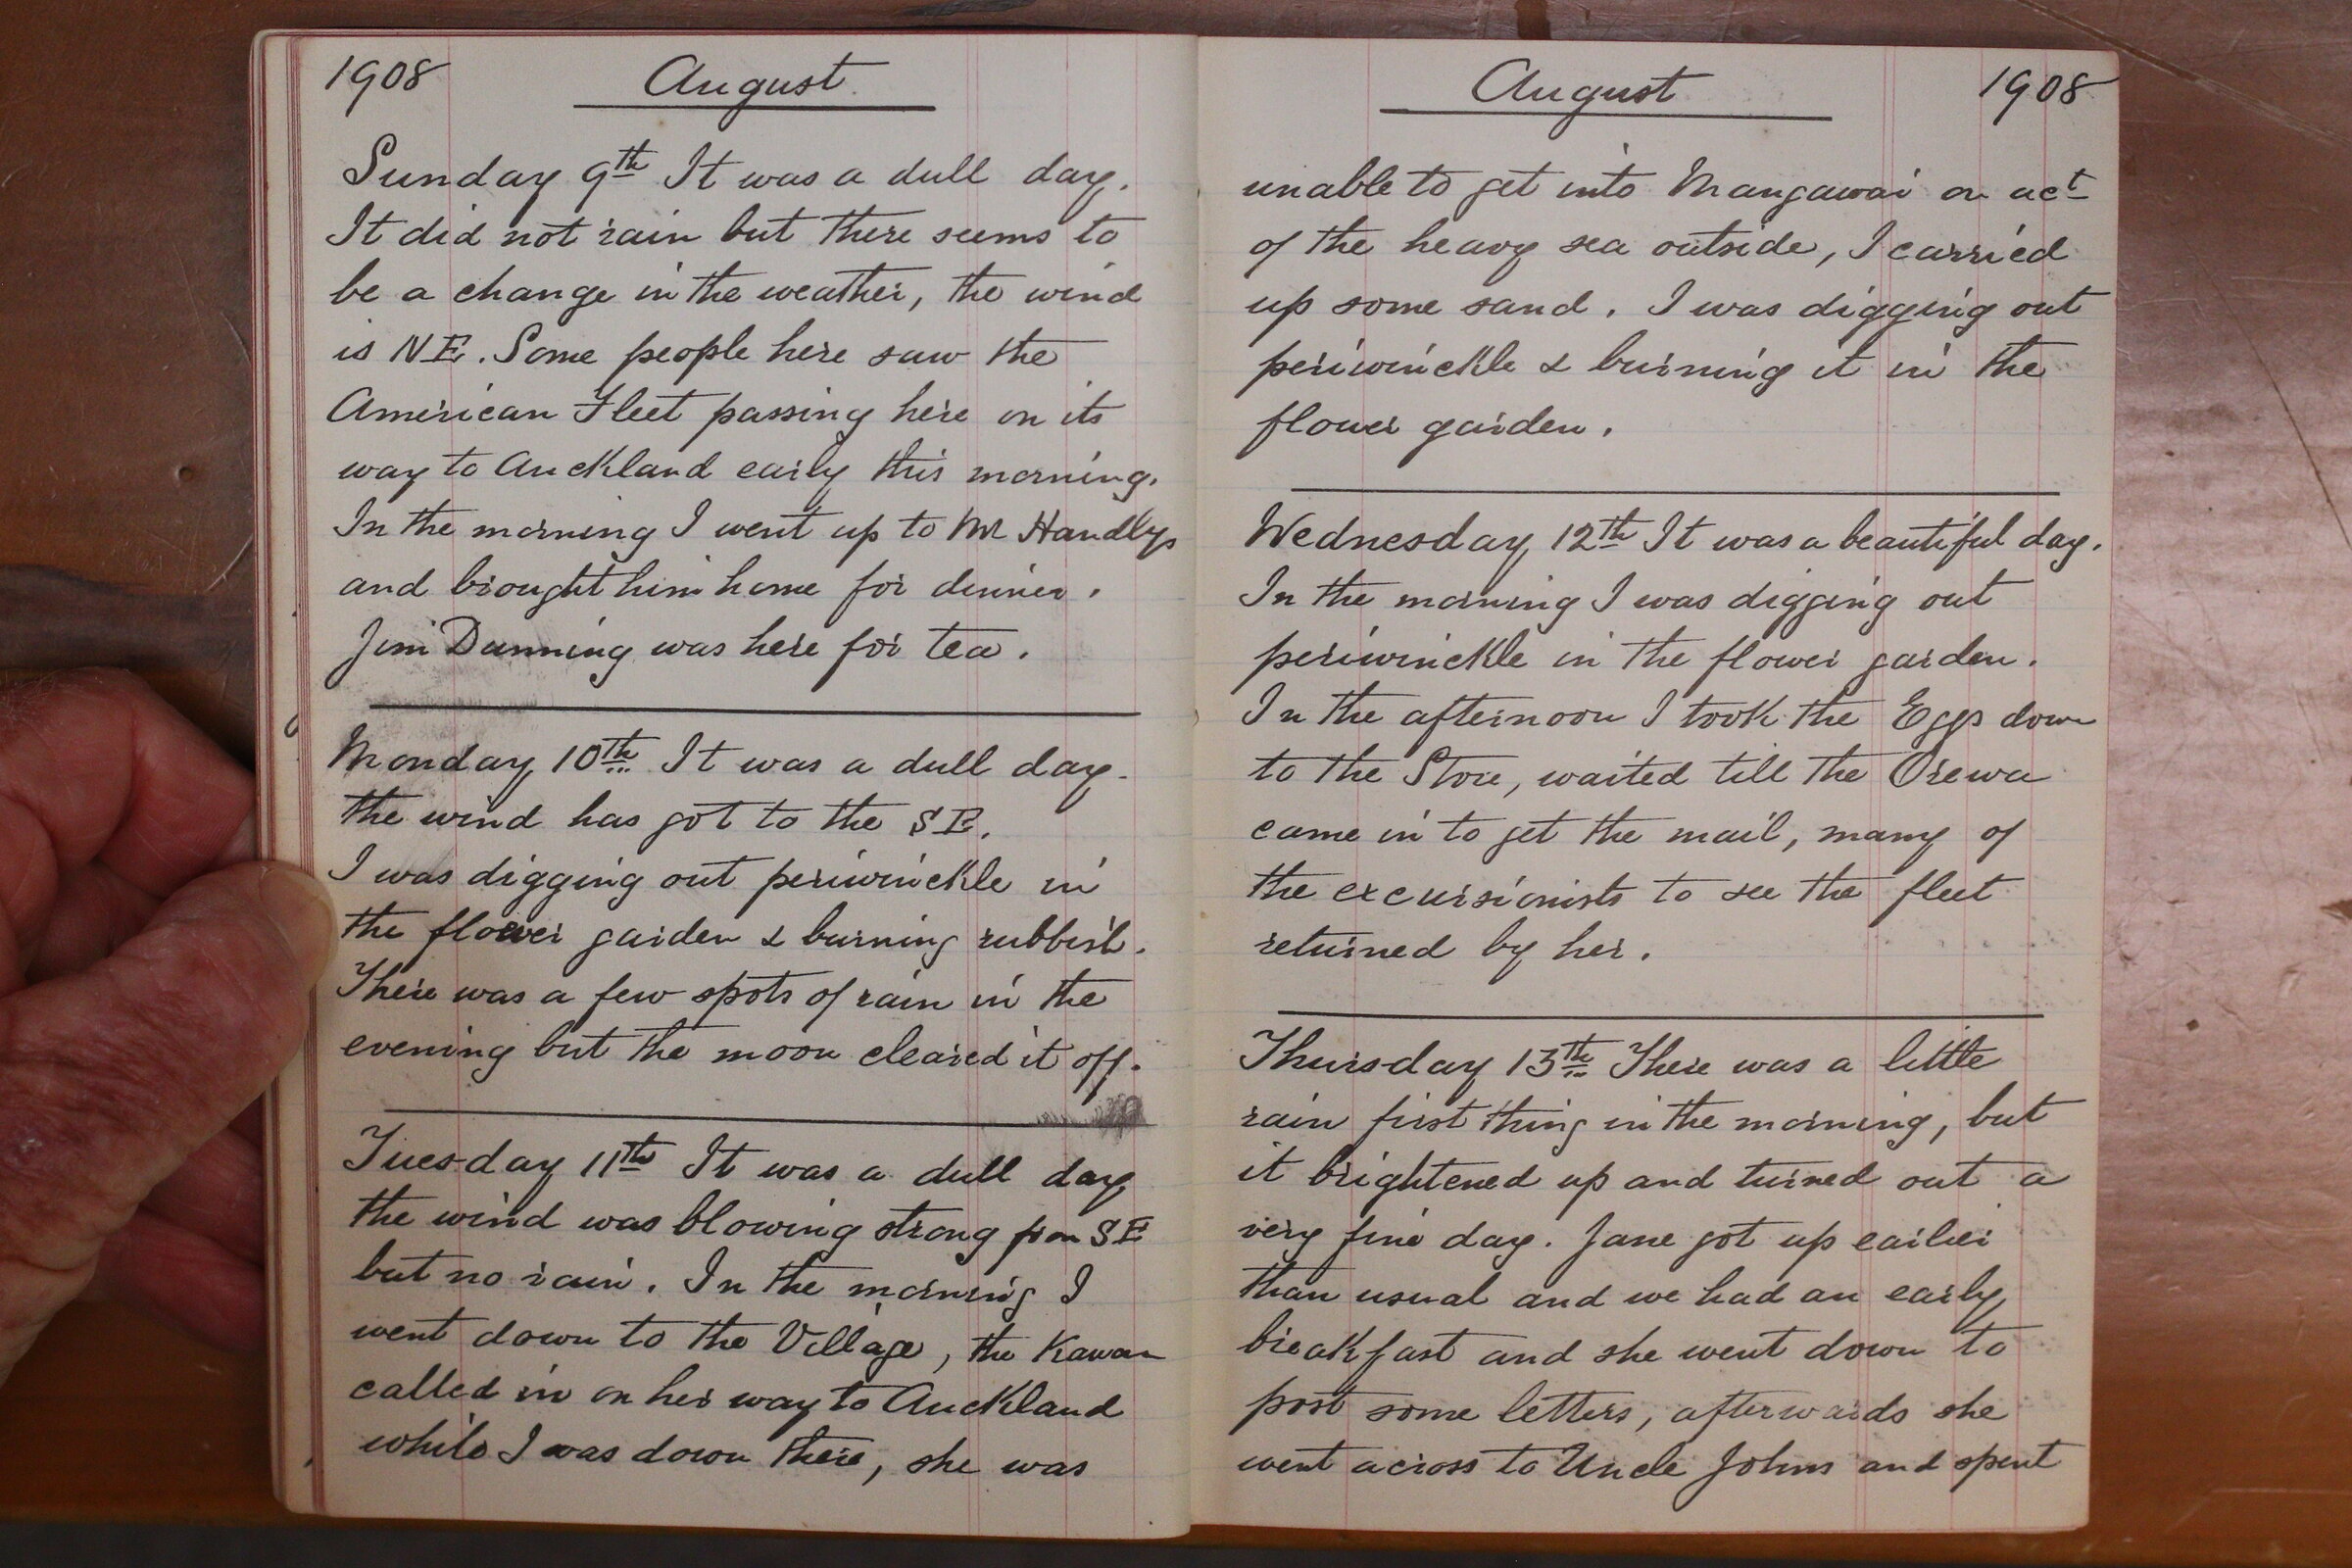 1908 August
Sunday 9th It was a dull day.
It did not rain but there seems to
be a change in the weather, the wind
is NE. Some people here saw the
American Fleet passing here on its
way to Auckland early this morning.
In the morning I went up to Mr Handlys
and brought him home for dinner.
Jim Dunning was here for tea.
Monday 10th It was a dull day.
the wind has got to the SE.
I was digging out periwinckle in
the flower garden & burning rubbish.
There was a few spots of rain in the
evening but the moon cleared it off.
Tuesday 11th It was a dull day
the wind was blowing strong from SE
but no rain. In the morning I
went down to the Village, the Kawau
called in on her way to Auckland
while I was down there, she was
August 1908
unable to get into Mangawai on act
of the heavy sea outside, I carried
up some sand. I was digging out
periwinckle & burning it in the
flower garden.
Wednesday 12th It was a beautiful day.
In the morning I was digging out
periwinckle in the flower garden.
In the afternoon I took the Eggs down
to the Store, waited till the Orewa
came in to get the mail, many of
the excursionists to see the fleet
returned by her.
Thursday 13th There was a little
rain first thing in the morning, but
it brightened up and turned out a
very fine day. Jane got up earlier
than usual and we had an early
breakfast and she went down to
post some letters, afterwards she
went across to Uncle Johns and spent